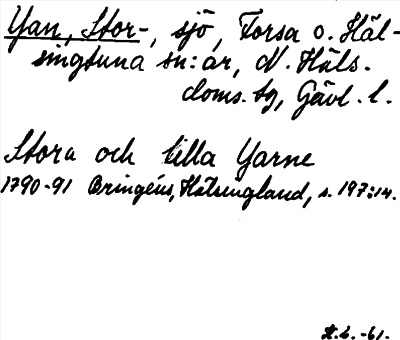 Yan, Stor-, sjö, Forsa o. Häl-
singtuna sn:ar, N. Häls.
doms. tg, Gävl. l.
Stora och lilla Yarne
1790-91 Bringéus, Hälsingland, s. 197:14.
H.L. -61.